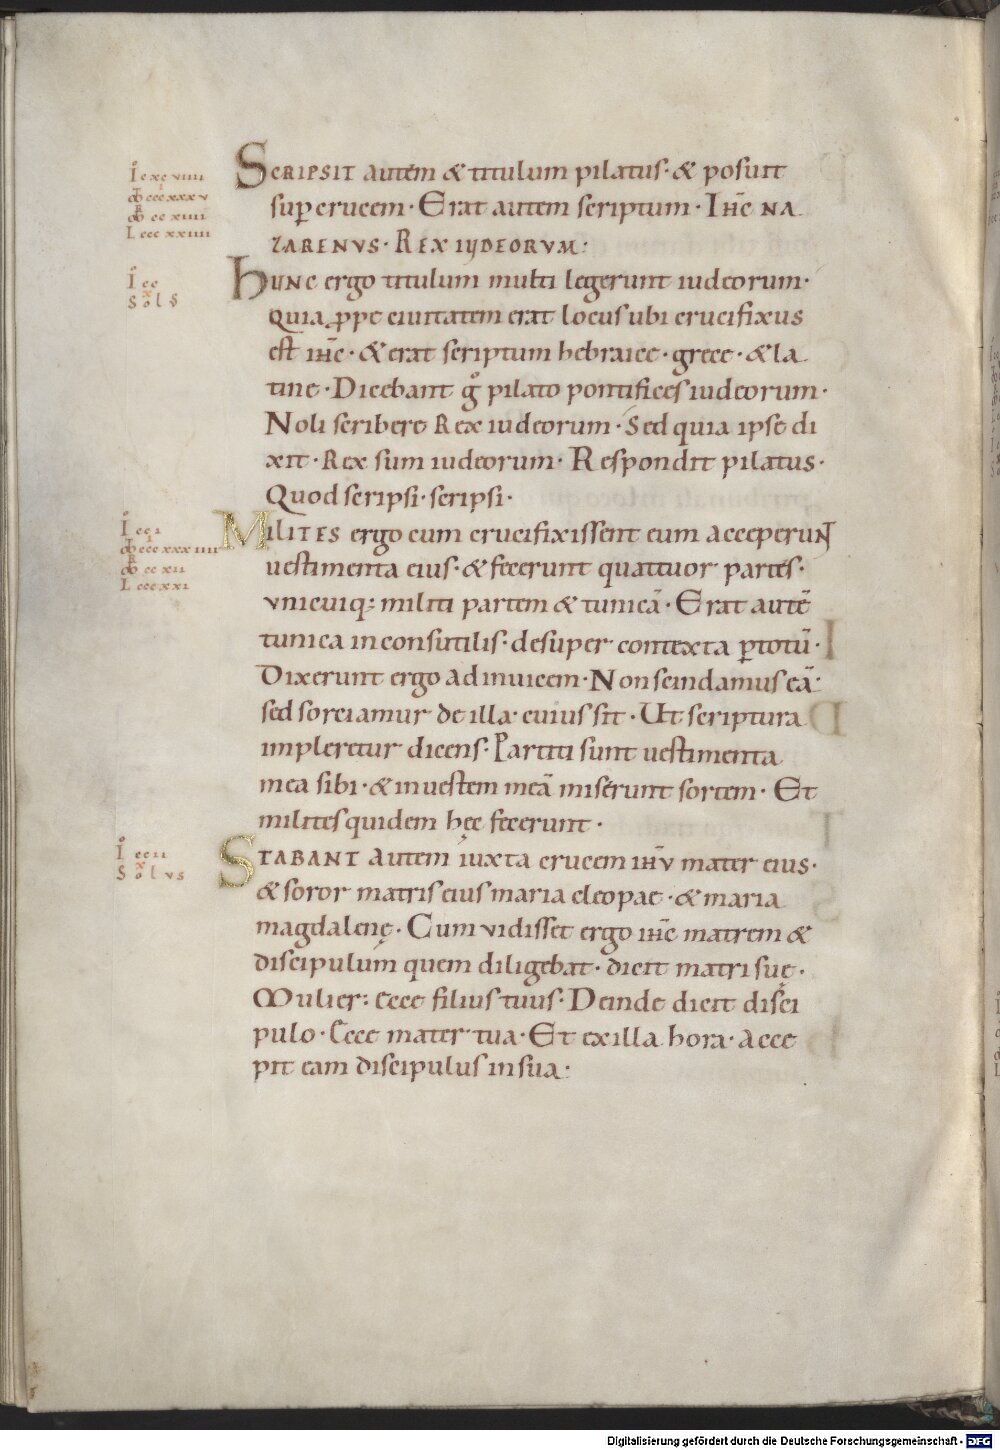 Io cxc viiii
SCRIPSIT autem & titulum pilatus· & posuit
ccc xxx v
cc xiiii
sup crucem· Erat autem scriptum· Ihc̄ NA
L ccc xxiiii
ZARENVS· REX IUDEORVM:
Io cc
HUNC ergo titulum multi legerunt iudeorum·
Solꝰ
quia ꝓpe ciuitatem erat locus ubi crucifixus
est ihc̄· & erat scriptum hebraice· grece· & la
tine· Dicebant gͦ pilato pontifices iudeorum·
Noli scribere Rex iudeorum· Sed quia ipse di
xit· Rex sum iudeorum· Respondit pilatus·
Quod scripsi· scripsi·
Io cci
MILITES ergo cum crucifixissent eum acceperunt
ccc xxx iiii
cc xii
uestimenta eius· & fecerunt quattuor partes·
L ccc xxi
vnicuiq; militi partem & tunicā· Erat autē
tunica inconsutilis· desuper contexta ꝑ totū·
Dixerunt ergo ad inuicem· Non scindamus eā·
sed sorciamur de illa· cuius sit· Ut scriptura
impleretur dicens· Partiti sunt uestimenta
mea sibi· & in uestem meā miserunt sortem· Et
milites quidem hęc fecerunt·
Io ccii
STABANT autem iuxta crucem ihv̄ mater eius·
Solvs
& soror matris eius maria cleopae· & maria
magdalenę· Cum vidisset ergo ihc̄ matrem &
discipulum quem diligebat· dicit matri suę·
Mulier: Ecce filius tuus· Deinde dicit disci
pulo· Ecce mater tua· Et ex illa hora· acce
pit eam discipulus in sua:
Digitalisierung gefördert durch die Deutsche Forschungsgemeinschaft - DFG